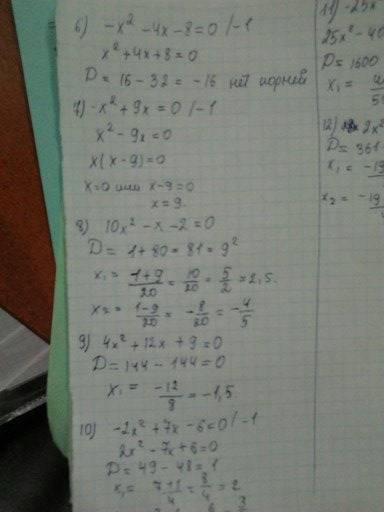 6) -x² - 4x - 8 = 0 /-1
x² + 4x + 8 = 0
D = 16 - 32 = -16 нет корней
7) -x² + 9x = 0 /-1
x² - 9x = 0
x(x - 9) = 0
x=0 или x-9=0
x=9.
8) 10x² - x - 2 = 0
D = 1 + 80 = 81 = 9²
x₁ = (1+9)/20 = 10/20 = 5/2 = 2,5.
x₂ = (1-9)/20 = -8/20 = -4/5
9) 4x² + 12x + 9 = 0
D = 144 - 144 = 0
x₁ = -12/8 = -1,5.
10) -2x² + 7x - 6 = 0 /-1
2x² - 7x + 6 = 0
D = 49 - 48 = 1
x₁ = (7+1)/4 = 8/4 = 2
11) -25x
25x² - 40
D = 1600
x₁ =
12) 2x²
D = 361
x₁ = -19
x₂ = -19